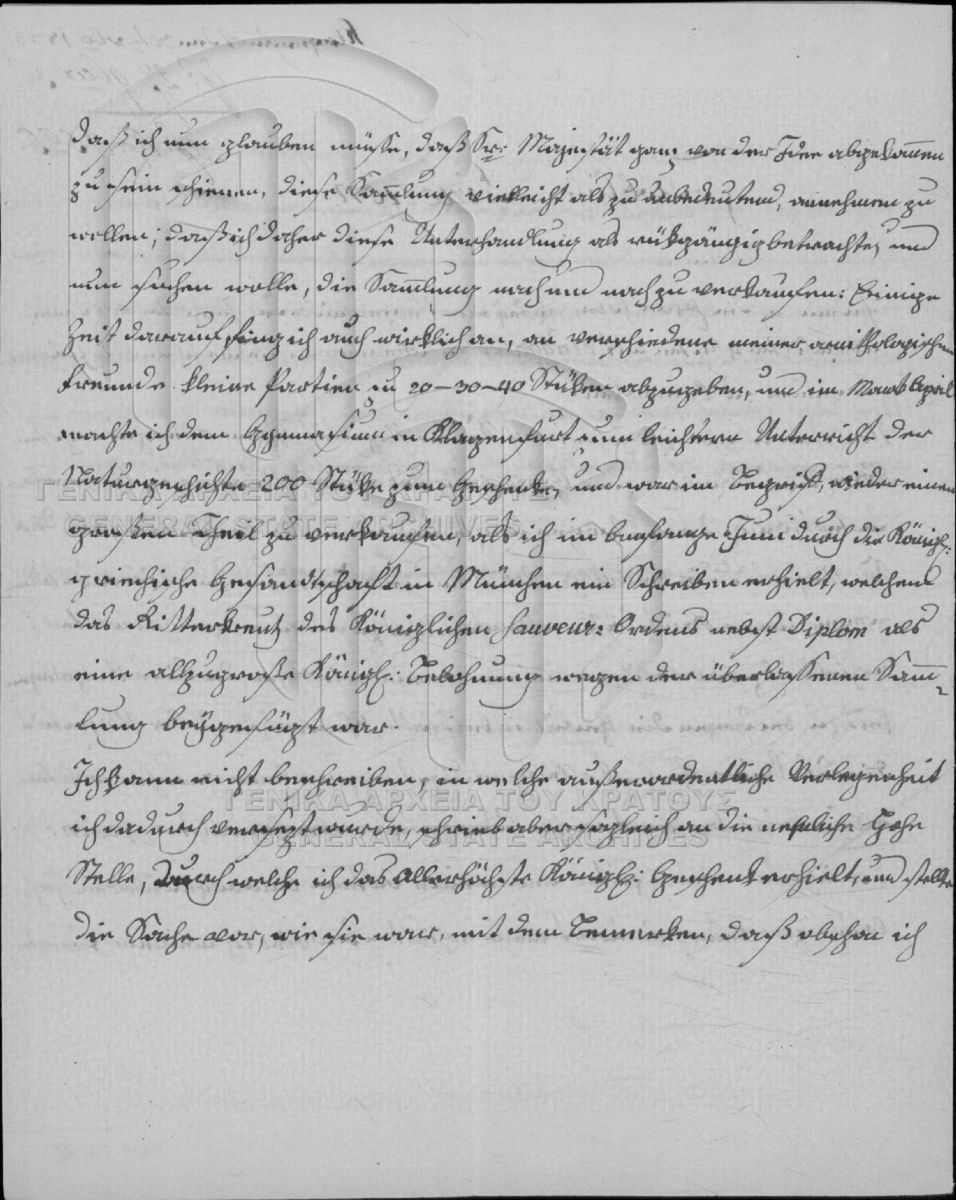 daß ich nun glauben müsse, daß Sr: Majestät ganz von der Idee abgekommen
zu sein schienen, diese Sammlung vielleicht als zu unbedeutend, annehmen zu
wollen; daß ich daher diese Unterhandlung als rükgängig betrachte, und
nun suchen wolle, die Sammlung nach und nach zu verkaufen: Einige
Zeit darauf, fing ich auch wirklich an, an verschiedene meiner ornithologischen
Freunde kleine Partien zu 20-30-40 Stüken abzugeben, und im Monat April
machte ich dem Gymnasium in Klagenfurt zum leichtern Unterricht der
Naturgeschichte 200 Stüke zum Geschenke, und war im Begriff, wieder einen
großen Theil zu verkaufen, als ich im Anfange Juni durch die Königl:
griechische Gesandtschaft in München ein Schreiben erhielt, welchem
das Ritterkreutz des Königlichen Sauveur: Ordens nebst Diplom als
eine allzugroße Königl: Belohnung wegen der überlassenen Samm-
lung beygefügt war.
Ich kann nicht beschreiben, in welche außerordentliche Verlegenheit
ich dadurch versezt wurde, schrieb aber sogleich an die nehmliche Hohe
Stelle, durch welche ich das Allerhöchste Königl: Geschenk erhielt, und stellte
die Sache vor, wie sie war, mit dem Bemerken, daß obschon ich
ΓΕΝΙΚΑ ΑΡΧΕΙΑ ΤΟΥ ΚΡΑΤΟΥΣ
GENERAL STATE ARCHIVES
ΓΕΝΙΚΑ ΑΡΧΕΙΑ ΤΟΥ ΚΡΑΤΟΥΣ
GENERAL STATE ARCHIVES